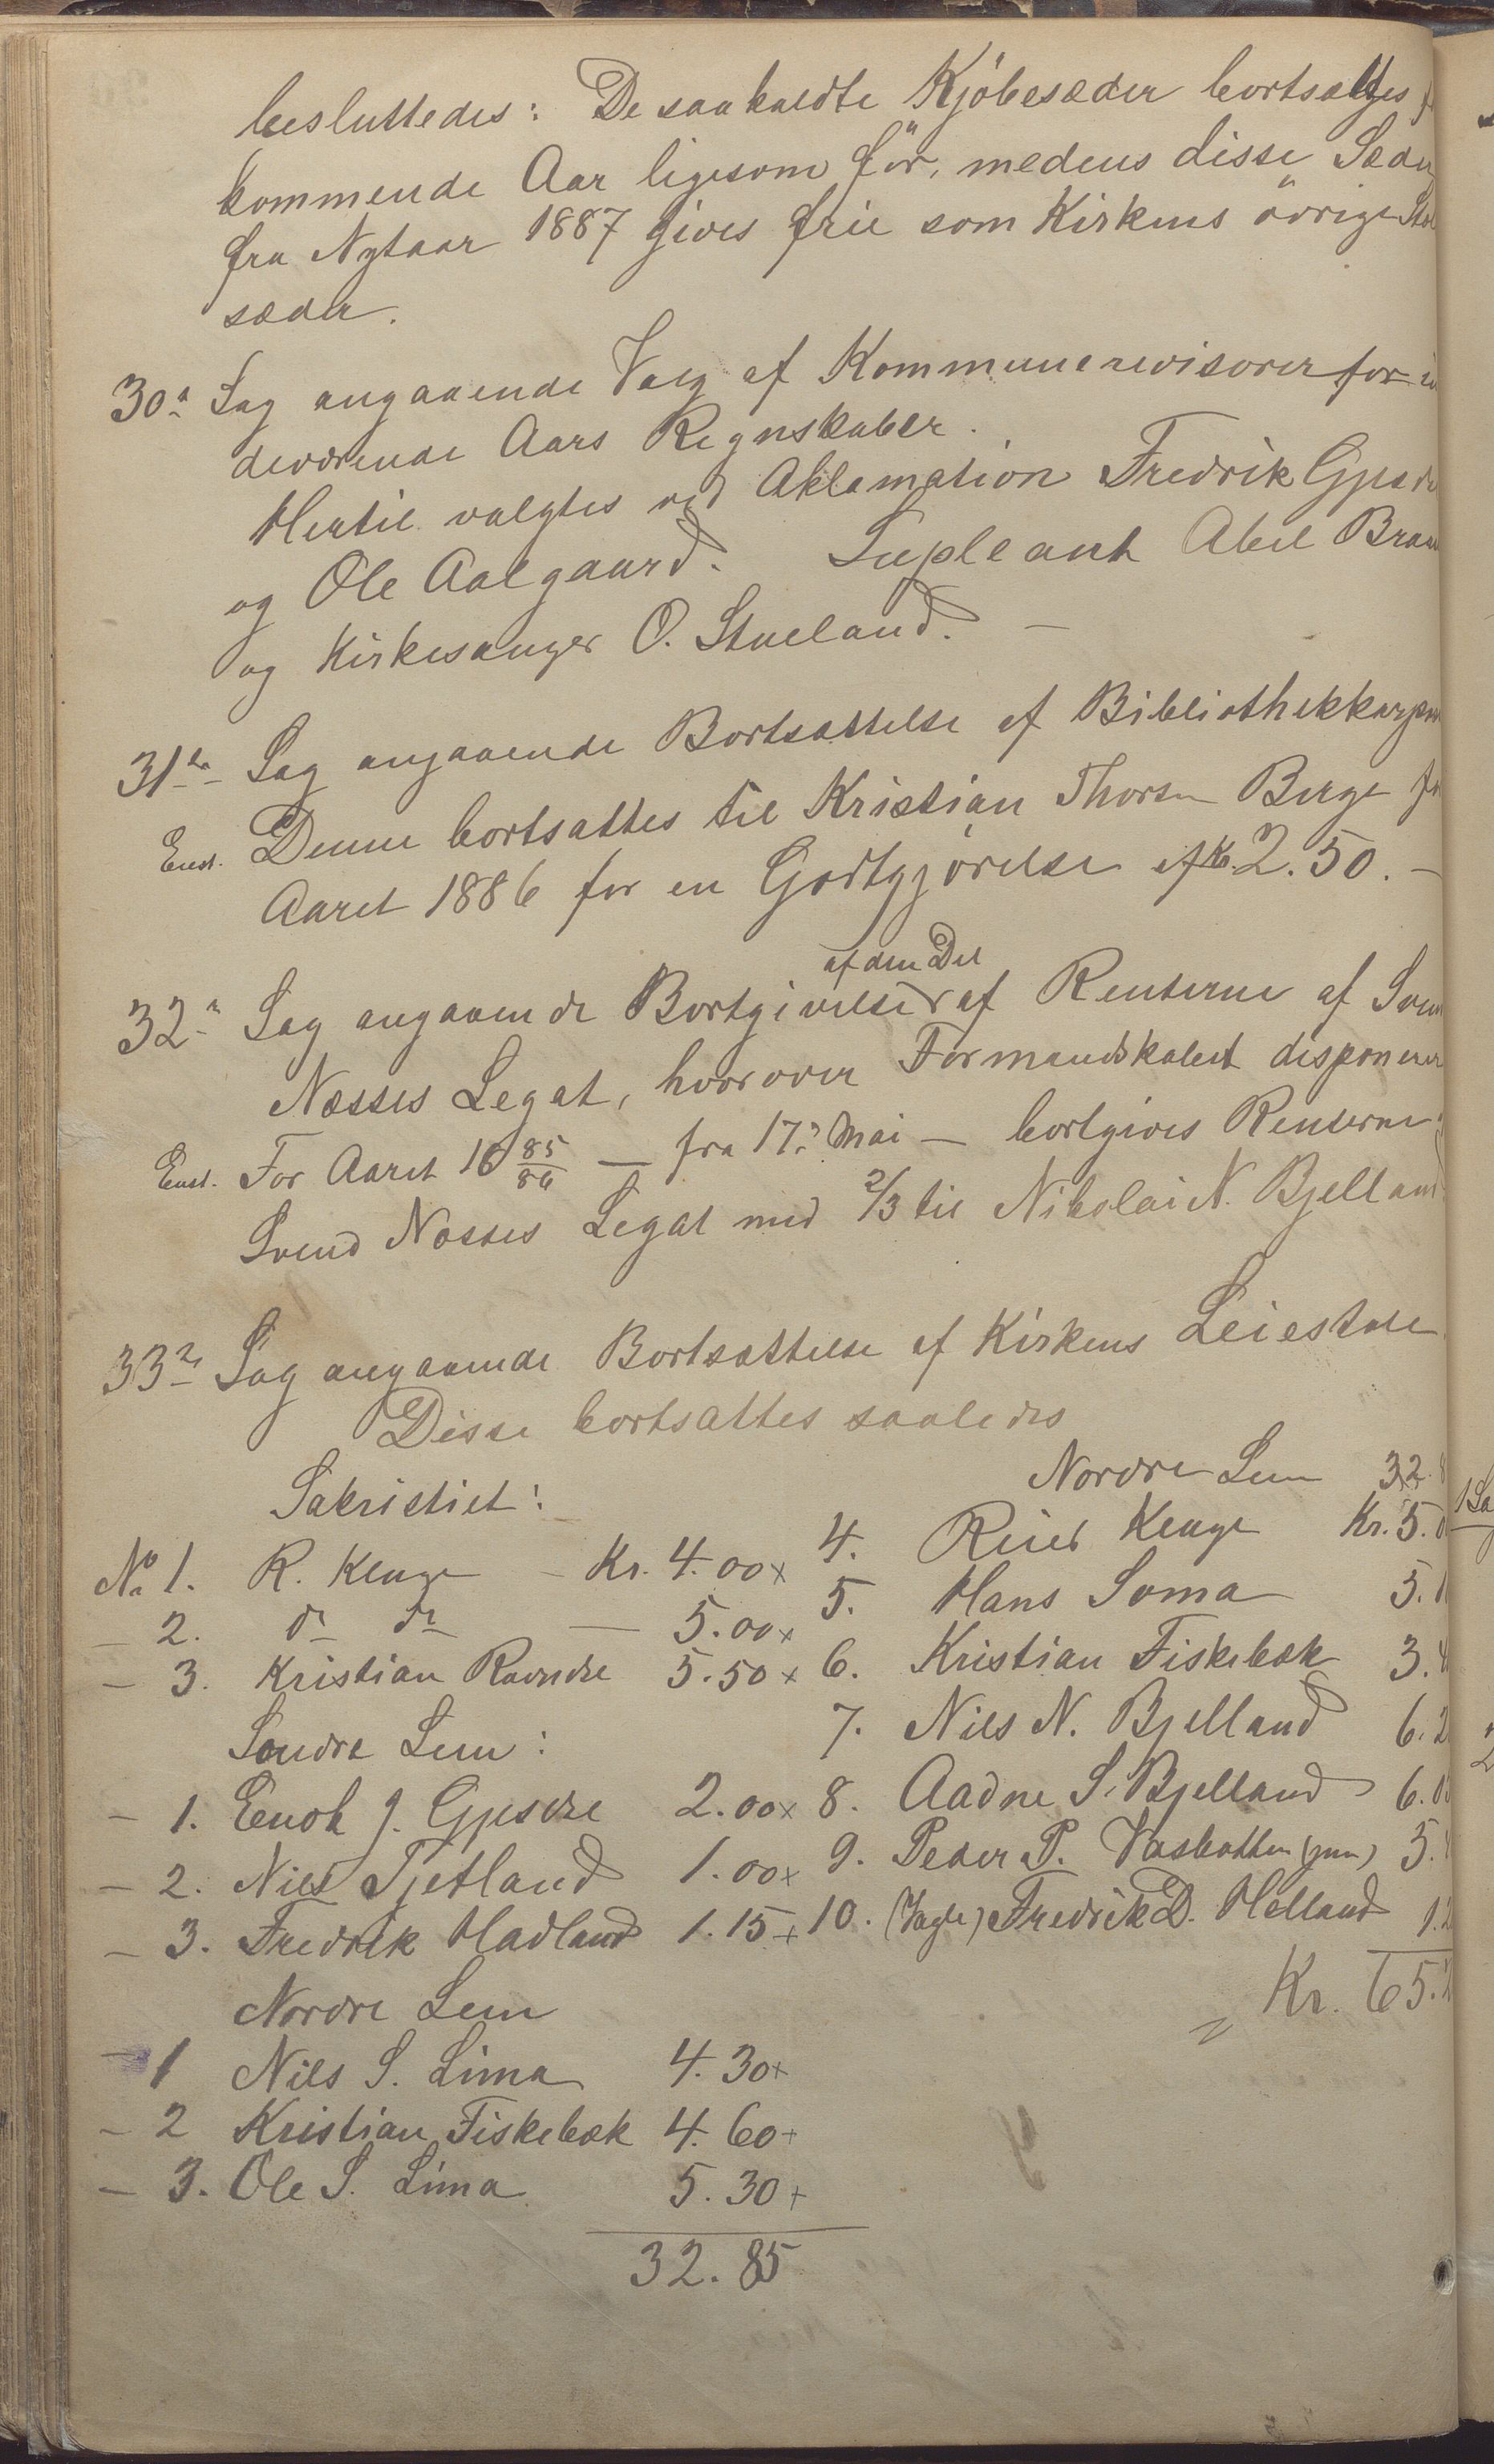 besluttedes: De saakaldte Kjöbesæder bortsættes
kommende Aar ligesom för, medens disse Sæder
fra Nytaar 1887 gives frie som Kirkens övrige
sæder.
30. Sag angaaende Valg af Kommunerevisorer for
deværende Aars Regnskaber.
Hertil valgtes ved Aklamation Fredrik Gjesd
og Ole Aalgaard. Supleant Abel
og Kirkesanger O. Stueland. —
31te Sag angaaende Bortsættelse af
Enst. Denne bortsattes til Kristian Thorsen Berge
Aaret 1886 for en Godtgjörelse af Kr. 2.50. —
af den Del
32. Sag angaaende Bortgivelse af Renterne af
Næsses Legat, hvorover Formandskabet disponerer
Enst. For Aaret 18 85/86 — fra 17. Mai — bortgives Renterne
Svend Næsses Legat med 2/3 til Nikolai N. Bjelland
33. Sag angaaende Bortsættelse af Kirkens Leiestole
Disse bortsattes saaledes
Sakristiet:
No 1. R. Kenge – Kr. 4.00 x
– 2. do do — 5.00 x
– 3. Kristian Ravndre 5.50 x
Söndre Lem:
– 1. Enok J. Gjesdre 2.00 x
– 2. Niels Tjetland 1.00 x
– 3. Fredrik Hadland 1.15 x
Nordre Lem
– 1 Nils S. Lima 4.30 x
– 2 Kristian Fiskebæk 4.60 +
– 3. Ole S. Lima 5.30 +
32.85
Nordre Lem 32.
4. Reier Kenge Kr. 5.
5. Hans Soma 5.
6. Kristian Fiskebæk 3.
7. Niels N. Bjelland 6.2
8. Aadne S. Bjelland 6.0
9. Peder P. Vasbotten (jun) 5.
10. (Vagle) Fredrik D. Helland 1.2
Kr. 65.